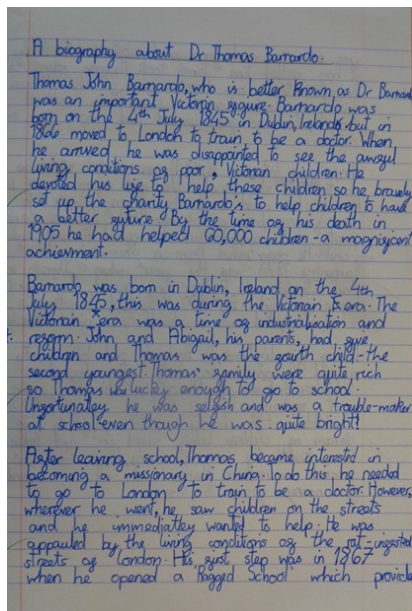 A biography about Dr Thomas Barnardo.
Thomas John Barnardo, who is better known as Dr Barnard
was an important Victorian figure. Barnardo was
born on the 4th July 1845 in Dublin, Ireland, but in
1866 moved to London to train to be a doctor. When
he arrived he was disappointed to see the awful
living conditions of poor, Victorian children. He
devoted his life to help these children so he bravely
set up the charity Barnardo's to help children to have
a better future. By the time of his death in
1905 he had helped 60,000 children - a magnificent
achievment.
Barnardo was born in Dublin, Ireland on the 4th
July 1845, this was during the Victorain era. The
Victorain era was a time of industrialisation and
reform. John and Abigail, his parents, had five
children and Thomas was the fourth child - the
second youngest. Thomas' family were quite rich
so Thomas was lucky enough to go to school.
Unfortunatley he was selfish and was a trouble-maker
at school even though he was quite bright!
After leaving school, Thomas became interested in
becoming a missionary in China. To do this he needed
to go to London to train to be a doctor. However,
wherever he went, he saw children on the streets
and he immediatley wanted to help. He was
appauled by the living conditions of the rat-infested
streets of London. His first step was in 1867
when he opened a Ragged School which provide